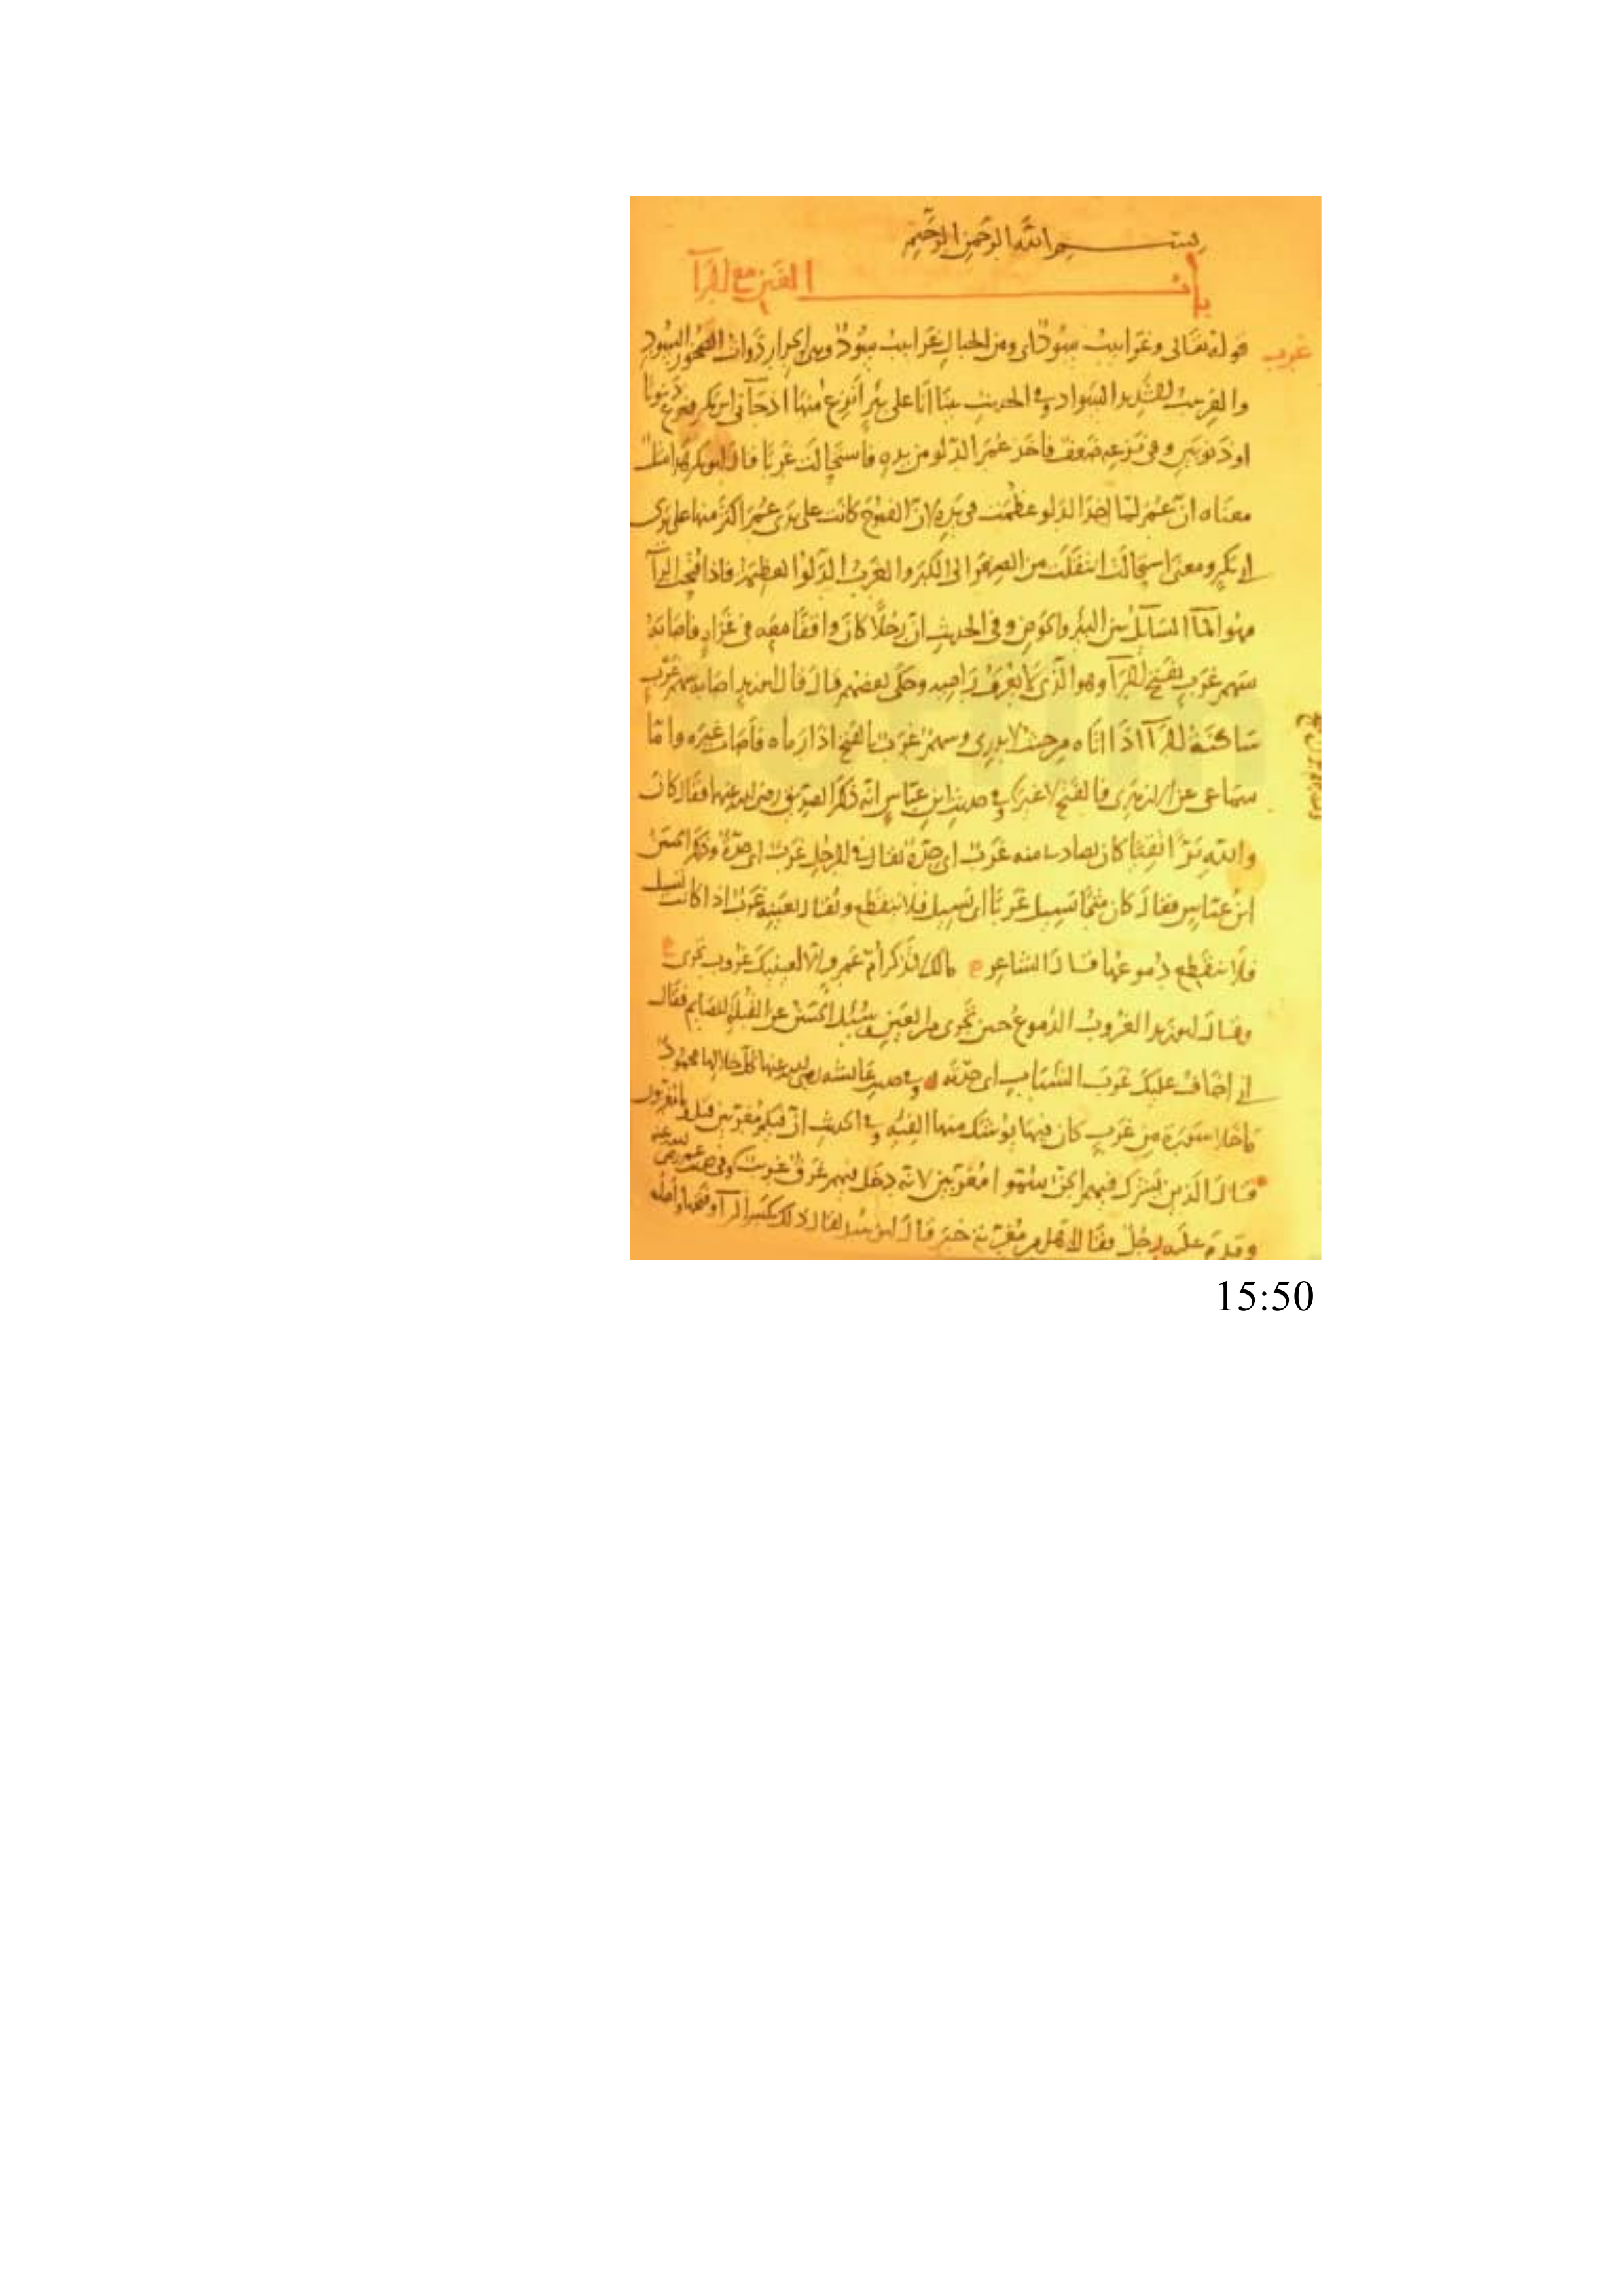 بسم الله الرحمن الرحيم
باب الغين مع الرآ
غرب
قوله تعالى وغرابيب سود اى ومن الجبال غرابيب سود وهى الحرار ذوات الصخور السود
والغربيب الشديد السواد وفى الحديث بينا انا على بئر انزع منها اذ جآنى ابو بكر فنزع ذنوبا
او ذنوبين وفى نزعه ضعف فاخذ عمر الدلو من يده فاستحالت غربا قال ابو بكر هذا مثل
معناه ان عمر لما اخذ الدلو عظمت فى يده لان الفتوح كانت على يدى عمر اكثر منها على يدى
ابى بكر ومعنى استحالت انتقلت من الصغر الى الكبر والغرب الدلو العظيمة فاذا فتحت الرآ
فهو المآ السآيل بين البئر والحوض وفى الحديث ان رجلا كان واقفا معه فى غزاة فاصابه
سهم غرب بفتح الرآ وهو الذى لا يعرف راميه وحكى بعضهم قال قال ابو زيد اصابه سهم غرب
ساكنة الرآ اذا اتاه من حيث لا يدرى وسهم غرب بالفتح اذا رماه فاصاب غيره واما
سماعى عن الازهرى فالفتح لا غير وفى حديث ابن عباس انه ذكر الصديق رضى الله عنهما فقال كان
والله برا تقيا كان يصادا منه غرب اى حدة يقال فى الرجل غرب اى حدة وذكر الحسن
ابن عباس فقال كان مثجا يسيل غربا اى يسيل فلا ينقطع ويقال بعينه غرب اذا كانت تسيل
فلا تنقطع دموعها قال الشاعر مالك لا تذكر ام عمرو الا لعينيك غروب تجرى
وقال ابو زيد الغروب الدموع حين تجرى من العين وسئل الحسن عن القبلة للصايم فقال
انى اخاف عليك غرب الشباب اى حدته وفى حديث عائشه رضى الله عنها كل خلالها محمود
ما خلا سورة من غرب كان فيها يوشك منها الفيئه وفى الحديث ان فيكم مغربين قيل وما مغربون
قال الذين يشرك فيهم الجن سموا مغربين لانه دخل فيهم عرق غريب وفى حديث عمر رضى الله عنه
وقدم عليه رجل فقال له هل من مغربة خبر قال ابو عبيد يقال ذلك بكسر الرآ وفتحها واصله